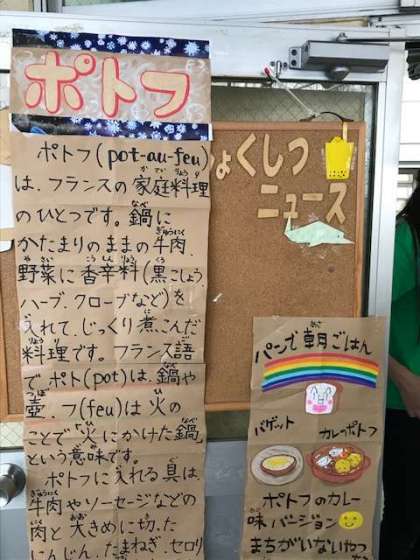 ポトフ
ポトフ(pot-au-feu)
は、フランスの家庭料理
のひとつです。鍋に
かたまりのままの牛肉、
野菜に香辛料(黒こしょう、
ハーブ、クローブなど)を
入れて、じっくり煮こんだ
料理です。フランス語
で、ポト(pot)は、鍋や
壺、フ(feu)は火の
ことで「火にかけた鍋」
という意味です。
ポトフに入れる具は、
牛肉やソーセージなどの
肉と大きめに切った
にんじん、たまねぎ、セロリ
ょくしつ
ニュース
パンで朝ごはん
バゲット
カレーポトフ
ポトフのカレー
味バージョン
まちがいないやつ